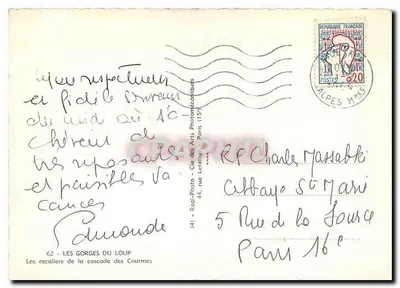 respectueux
et fidèle souvenir
du midi où s'a-
chèvent de
très reposantes
et paisibles va
cances
Edmonde
62 - LES GORGES DU LOUP
Les escaliers de la cascade des Courmes
Real-Photo - Cie des Arts Photomécaniques
44, rue Letellier - Paris (15e)
REPUBLIQUE FRANÇAISE
POSTES 0,20
ALPES MMES
Charles Massabki
Abbaye Ste Marie
5 Rue de la Source
Paris 16e